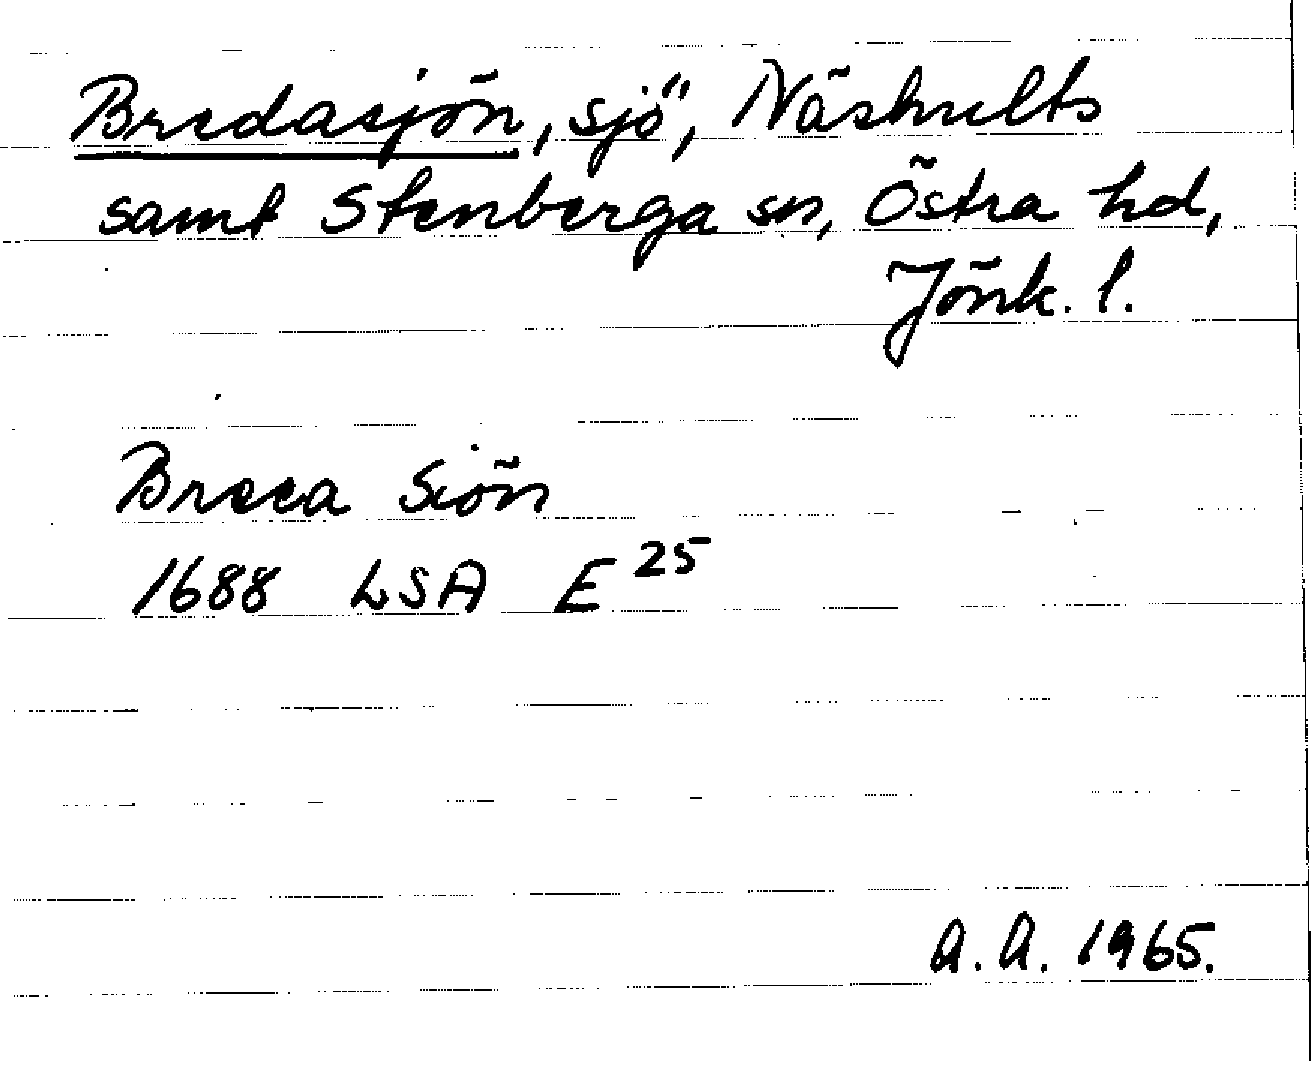 Bredasjön, sjö, Näshults
samt Stenberga sn, Östra hd,
Jönk. l.
Breea Siön
1688 LSA E 25
A.A. 1965.